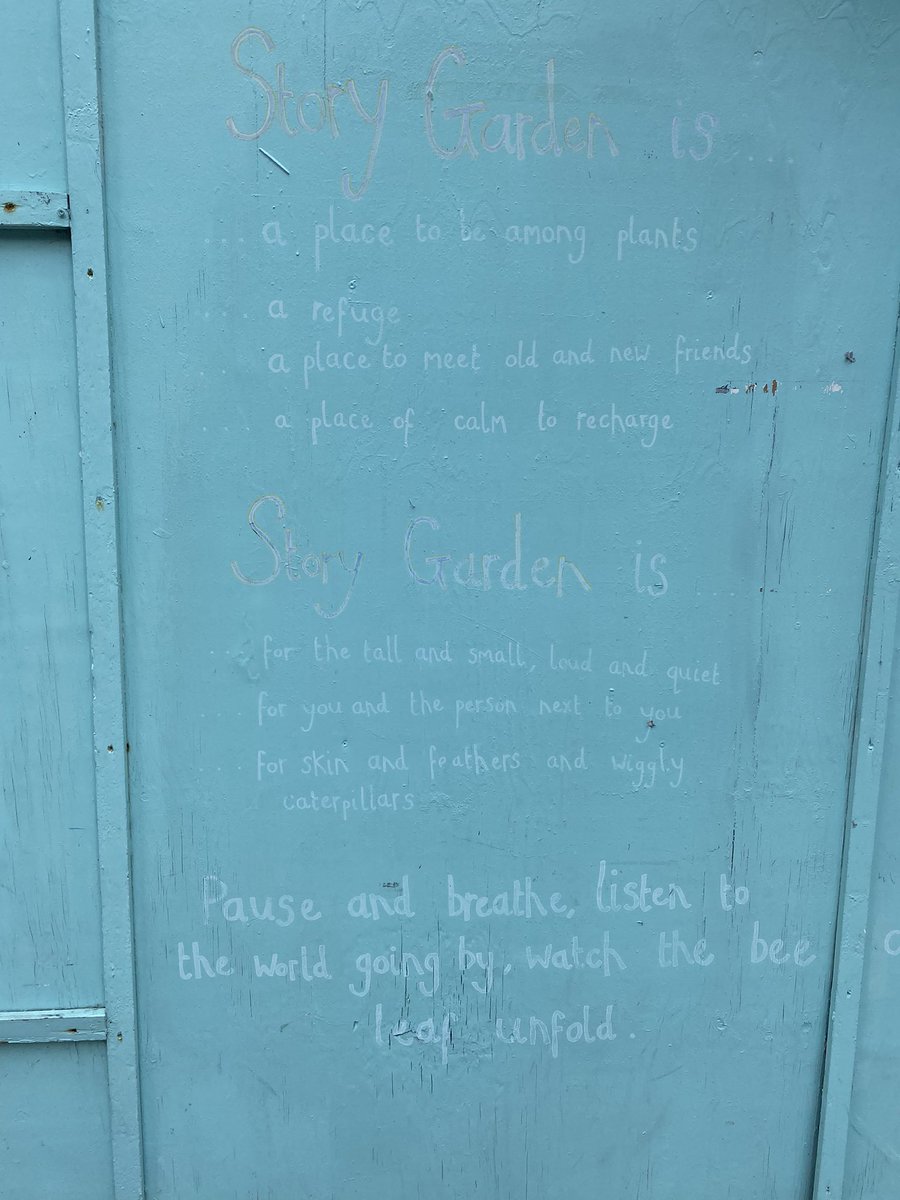 Story Garden is ...
... a place to be among plants
... a refuge
a place to meet old and new friends
.... a place of calm to recharge
Story Garden is ....
... for the tall and small, loud and quiet
.... for you and the person next to you
.... for skin and feathers and wiggly
caterpillars
Pause and breathe, listen to
the world going by, watch the bee
leaf unfold.